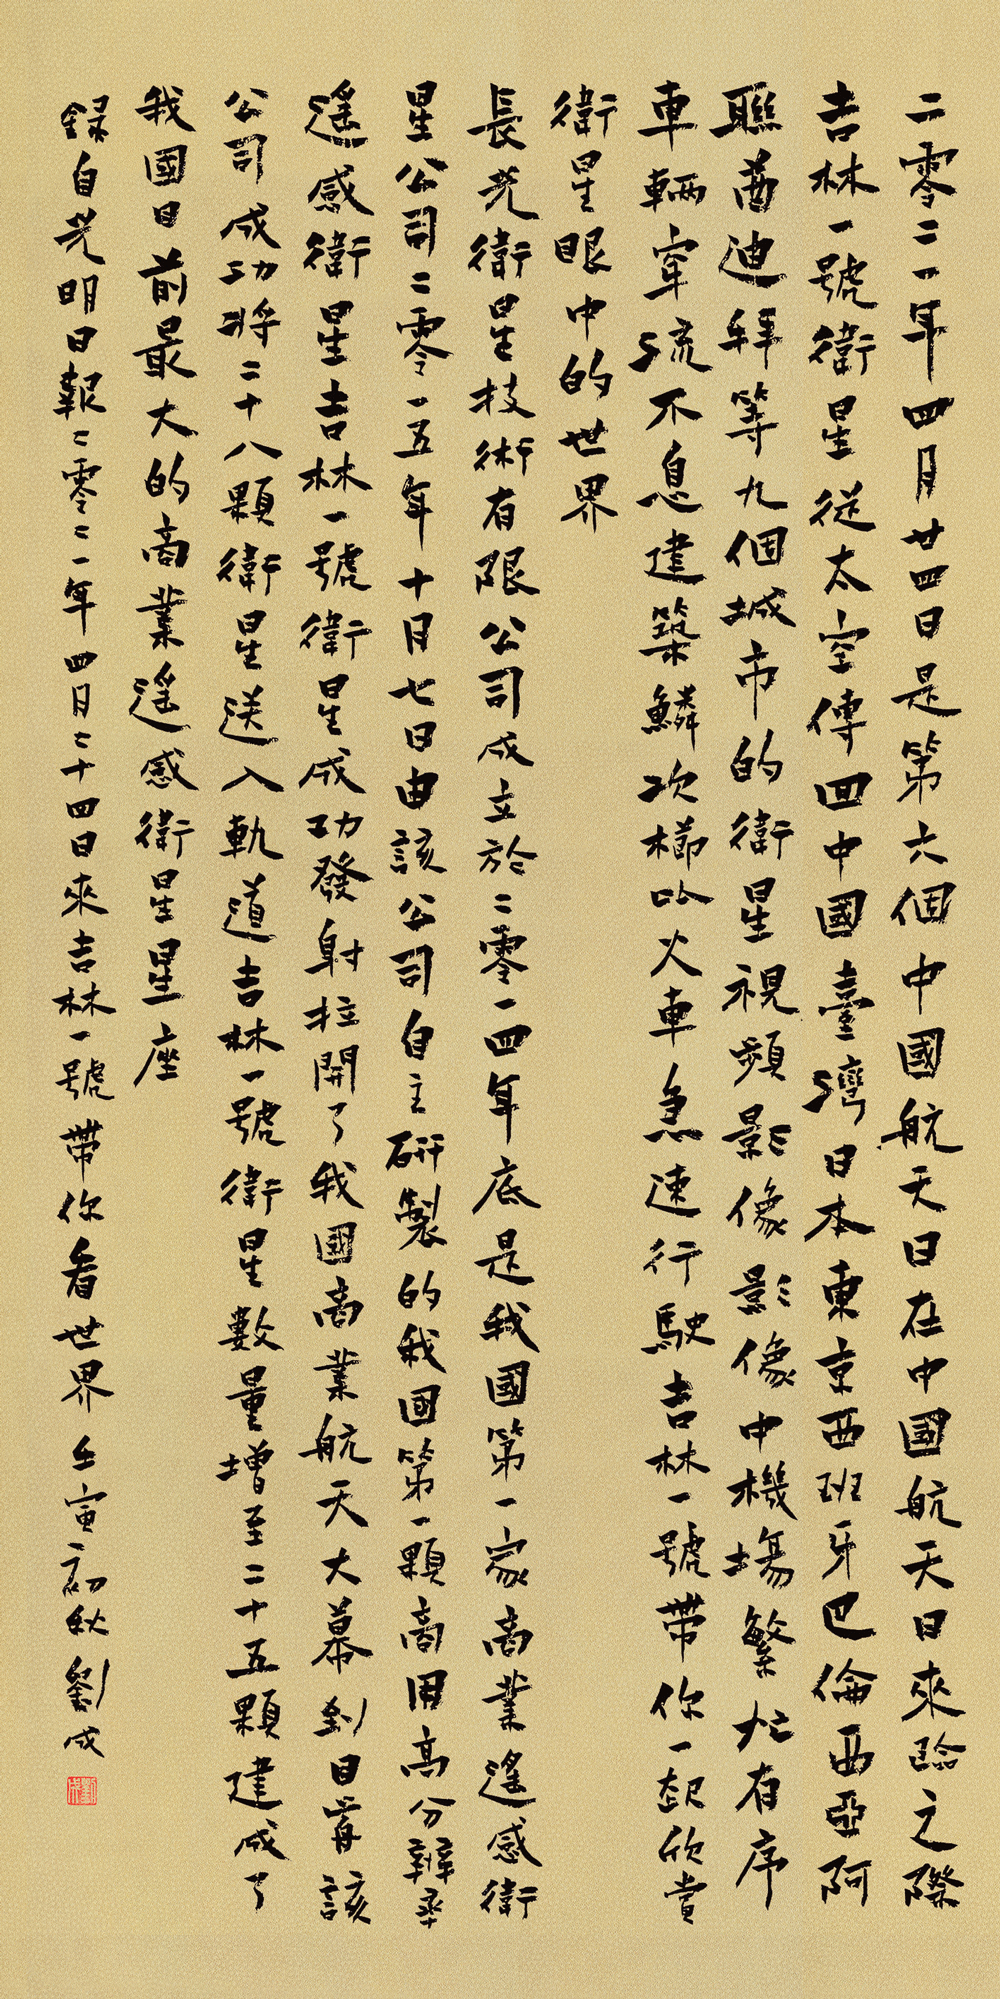 二零二一年四月廿四日是第六個中國航天日在中國航天日來臨之際
吉林一號衛星從太空傳回中國臺灣日本東京西班牙巴倫西亞阿
聯酋迪拜等九個城市的衛星視頻影像影像中機場繁忙有序
車輛穿流不息建築鱗次櫛比火車急速行駛吉林一號帶你一起欣賞
衛星眼中的世界
長光衛星技術有限公司成立於二零一四年底是我國第一家商業遙感衛
星公司二零一五年十月七日由該公司自主研製的我國第一顆商用高分辨率
遙感衛星吉林一號衛星成功發射拉開了我國商業航天大幕到目前該
公司成功將二十八顆衛星送入軌道吉林一號衛星數量增至二十五顆建成了
我國目前最大的商業遙感衛星星座
錄自光明日報二零二一年四月二十四日來吉林一號帶你看世界 壬寅初秋劉成